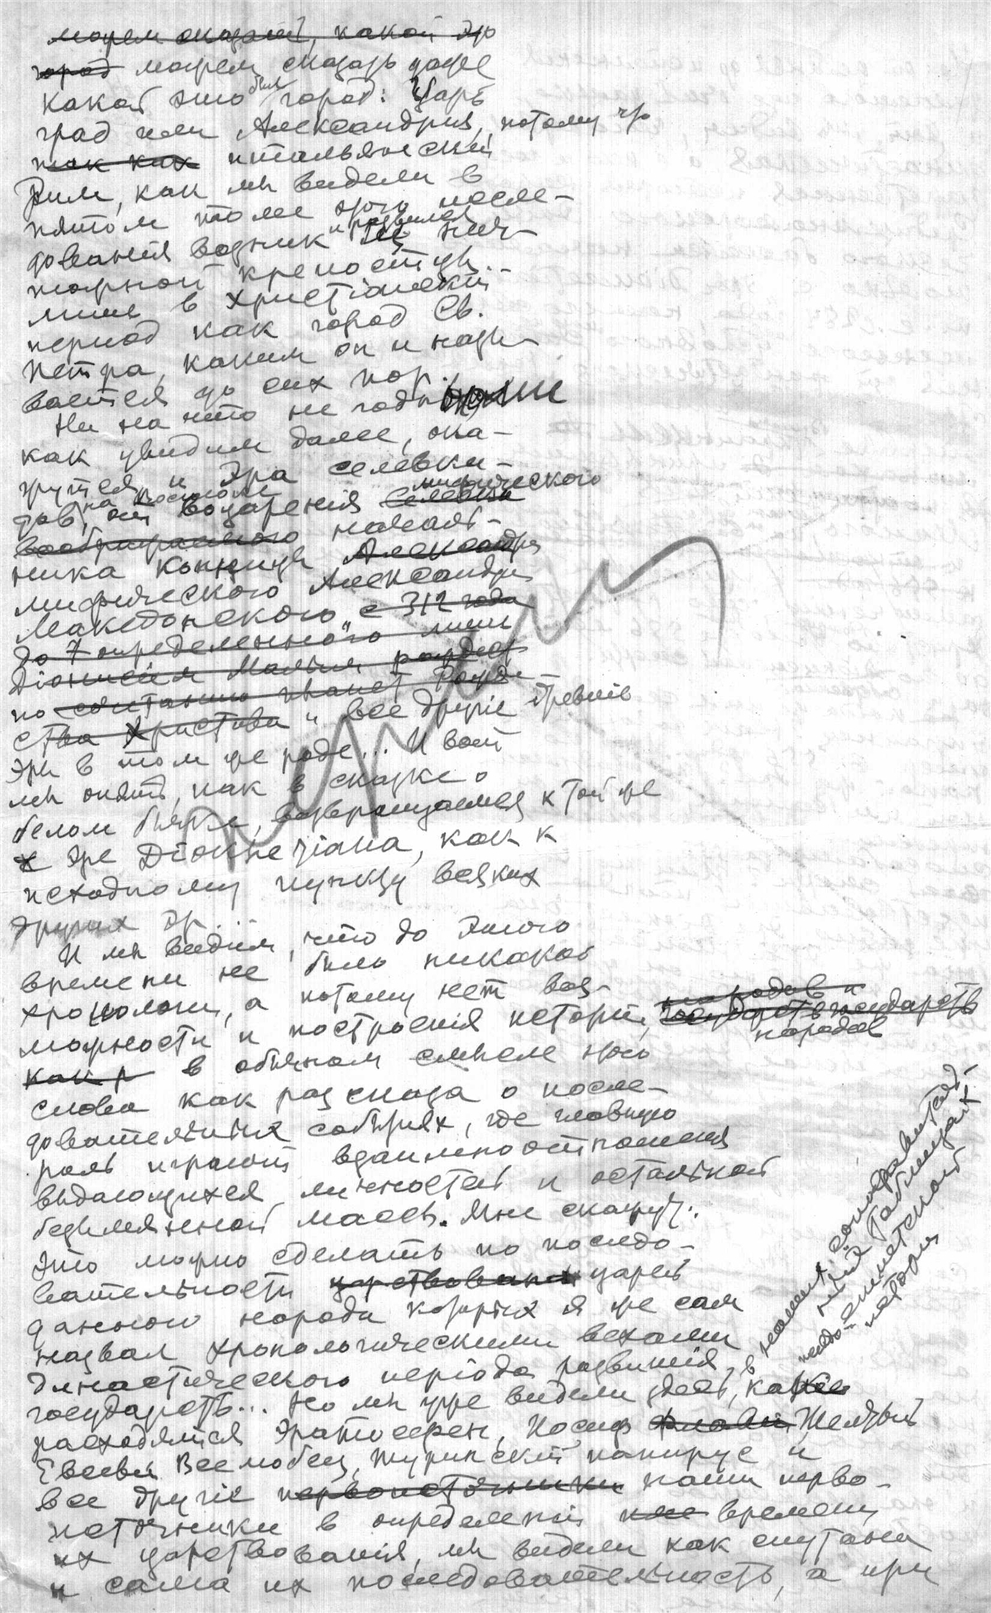 можем сказать, какой это
город можем сказать даже
какой это был город: Царь
град или Александрия, потому что
так как итальянский
Рим, как мы видели в
пятом томе этого иссле-
дования возник и развился из нич-
тожной крепостцы
лишь в христіанский
период как город Св.
Петра, каким он и назы-
вается до сих пор.
Ни на что не годными
как увидим далее, ока-
жутся и Эра селевки-
дов, на Востоке от воцарения мифического
воображаемого началь-
ника конницы Александра
мифического Александра
Македонского с 312 года
до определенного лишь
Діонисием Малым рождест
по сочетанию планет Рожде
ства Христова и все другіе древніе
эры в том же роде... И вот
мы опять, как в сказке о
белом бычке, возвращаемся к той же
к эре Діоклетіана, как к
исходному пункту всяких
других эр...
И мы видим, что до этого
времени не было никакой
хронологіи, а потому нет воз-
можности и построенія исторіи, народов и государств
народов
как р в обычном смысле этого
слова как разсказа о после-
довательных событиях, где главную
роль играют взаимноотношения
выдающихся личностей и остальной
безымянной массы. Мне скажут:
Это можно сделать по последо-
вательности царствования царей
данного народа которых я же сам
назвал хронологическими вехами
династического періода развитія
государств... Но мы уже видели здесь, как
в наших сопоставитель-
ных таблицах
египетской
исторіи
расходятся Эратосфен, Иосиф Флавій Желчый
Евсевій Всемобец, туринскій папирус и
все другіе первоисточники наши перво-
источники в определеніи времени
их царствованія, мы видели как спутана
и сама их последовательность, а при